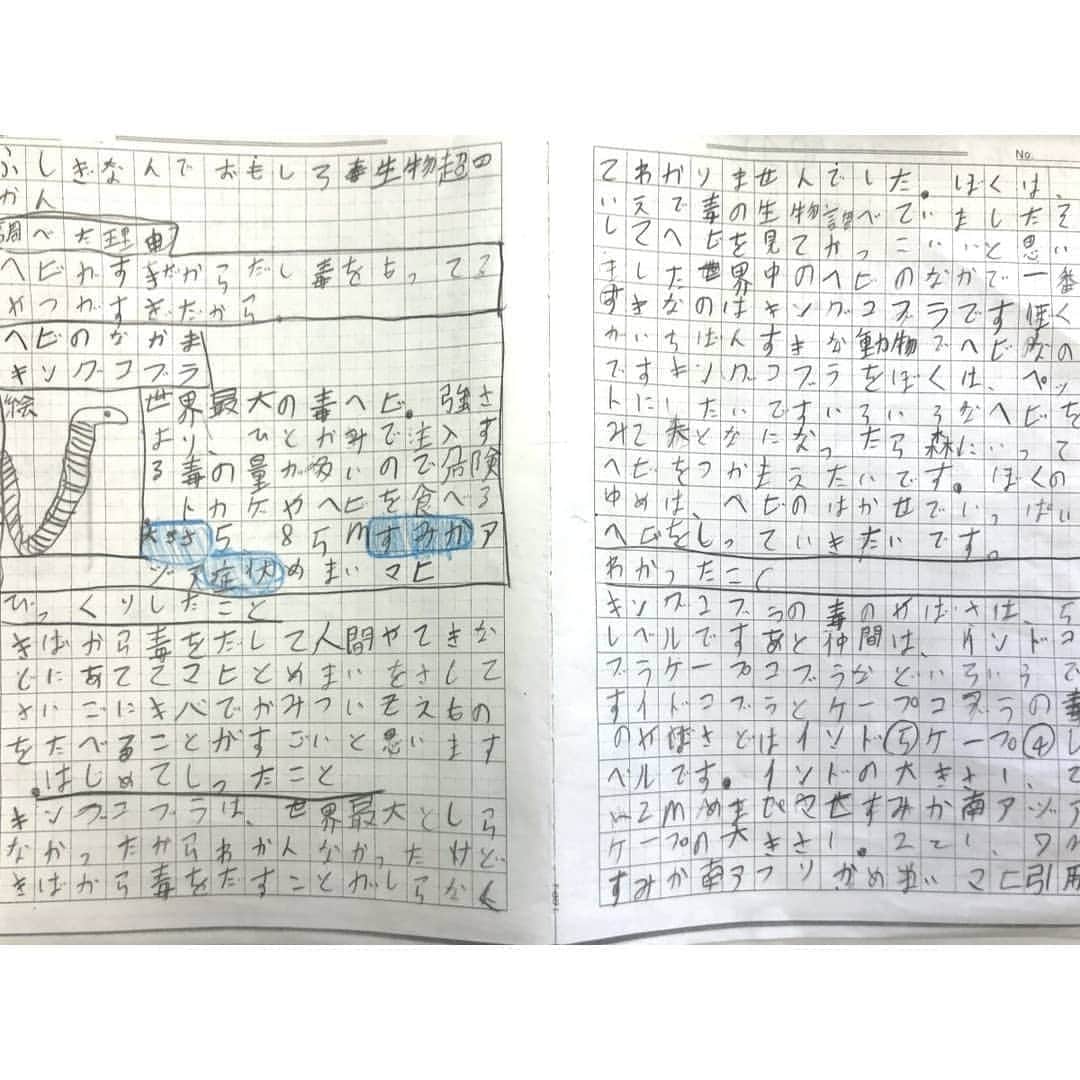 ふしきなんでおもしろ毒生物超四
かん
調べた理由
ヘビわすきだからだし毒をもってる
やつわすきだから
ヘビのなかま
キングコブラ
絵
世界最大の毒ヘビ。強さ
より、ひとかみで注入す
る毒の量が多いので危険
トカゲやヘビを食べる
大きさ5 85mすみかア
ジア症状めまいマヒ
びっくりしたこと
きばから毒をだして人間やてきな
どにあててマヒとめまいをさして
さいごにキバでかみついてえもの
をたべることがすごいと思います
。はじめてしったこと
キングコブラは、世界最大としら
なかったからわかんなかったけど
きばから毒をだすことがしらなく
No.
てわかりませんでした。ぼくは、
いえで毒の生物調べていましたそ
してヘビを見てかっこいいと思い
ました世界中のヘビのなかで一番
すきなのはキングコブラです
かいちばんすきな動物でヘビ
ですキングコブラをぼくは、ペッ
トにしたいですいろいろなヘビを
みて大人になったら森にいって
ヘビをつかまえたいです。ぼくの
ゆめは、ヘビのはかせでいっぱい
ヘビをしっていきたいです。
わかったこと
キングコブラの毒のやばさは、5
レベルですあと仲間は、インドコ
ブラケープコブラなどいろいろで
すイドコブラとケープコブラの毒
のやばさとはインド⑤ケープ④レ
ベルです。インドの大きさ1、
2mめまい すみか南アジア
ケープの大きさ1。2て1、7m
すみか南アフリカめまいマヒ引用